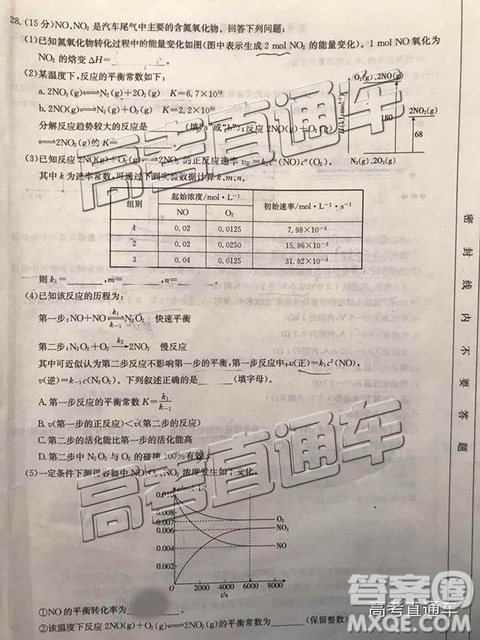 28.(15分)NO、NO₂是汽车尾气中主要的含氮氧化物。回答下列问题:
(1)已知氮氧化物转化过程中的能量变化如图(图中表示生成2 mol NO₂的能量变化)。1 mol NO氧化为
NO₂的焓变ΔH=
(2)某温度下,反应的平衡常数如下:
a. 2NO₂(g)⇌N₂(g)+2O₂(g) K=6.7×10¹⁶
b. 2NO(g)⇌N₂(g)+O₂(g) K=2.2×10³⁰
分解反应趋势较大的反应是 (填"a"或"b");反应2NO(g)+O₂(g)
⇌2NO₂(g)的K=
O₂(g),2NO(g)
180
2NO₂(g)
68
N₂(g),2O₂(g)
(3)已知反应2NO(g)+O₂(g)⇌2NO₂的正反应速率v正=k₁cᵐ(NO)cⁿ(O₂),
其中k为速率常数,可通过下列实验数据计算k、m、n。
组别 起始浓度/mol·L⁻¹ 初始速率/mol·L⁻¹·s⁻¹
NO O₂
1 0.02 0.0125 7.98×10⁻³
2 0.02 0.0250 15.96×10⁻³
3 0.04 0.0125 31.92×10⁻³
则k₁= ,m= ,n= 。
(4)已知该反应的历程为:
第一步:NO+NO⇌N₂O₂ 快速平衡
k₁
k₋₁
第二步:N₂O₂+O₂→2NO₂ 慢反应
其中可近似认为第二步反应不影响第一步的平衡,第一步中:v(正)=k₁c²(NO),
v(逆)=k₋₁c(N₂O₂)。下列叙述正确的是 (填字母)。
A. 第一步反应的平衡常数K=k₁/k₋₁
B. v(第一步的正反应)<v(第二步的反应)
C. 第二步的活化能比第一步的活化能高
D. 第二步中N₂O₂与O₂的碰撞100%有效
(5)一定条件下测得容器中NO、O₂、NO₂浓度发生如下变化。
0.010
0.008
0.006
0.004
0.002
0
2000
4000
6000
8000
t/s
O₂
NO₂
NO
①NO的平衡转化率为 。
②该温度下反应2NO(g)+O₂(g)⇌2NO₂ (保留整数)
密封线内不要答题
高考直通车
高考直通车
高考直通车
答案圈
高考直通车